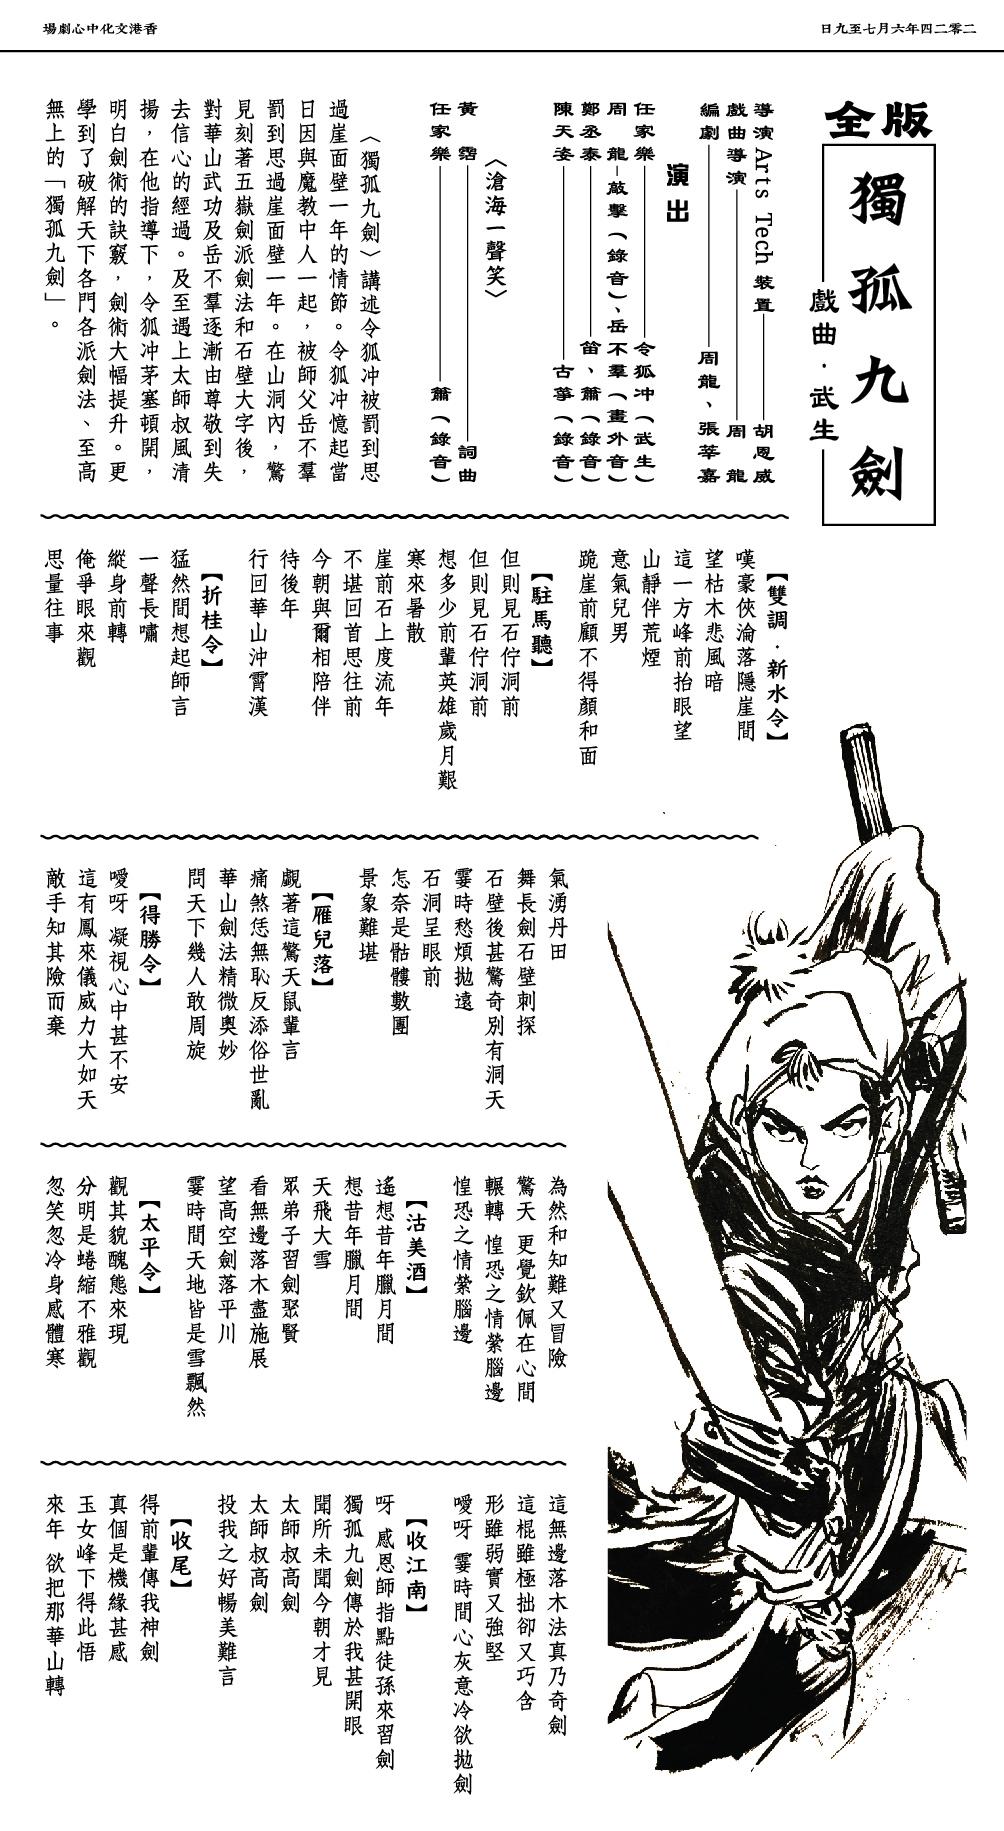 二零二四年六月七至九日
香港文化中心劇場
全版
獨孤九劍
戲曲．武生
導演、Arts Tech 裝置 胡恩威
戲曲導演 周龍
編劇 周龍、張莘嘉
演出
任家樂 令狐冲（武生）
周龍 敲擊（錄音）、岳不羣（畫外音）
鄭丞泰 笛、簫（錄音）
陳天姿 古箏（錄音）
〈滄海一聲笑〉
黃霑 詞曲
任家樂 簫（錄音）
〈獨孤九劍〉講述令狐冲被罰到思
過崖面壁一年的情節。令狐冲憶起當
日因與魔教中人一起，被師父岳不羣
罰到思過崖面壁一年。在山洞內，驚
見刻著五嶽劍派劍法和石壁大字後，
對華山武功及岳不羣逐漸由尊敬到失
去信心的經過。及至遇上太師叔風清
揚，在他指導下，令狐冲茅塞頓開，
明白劍術的訣竅，劍術大幅提升。更
學到了破解天下各門各派劍法、至高
無上的「獨孤九劍」。
【雙調．新水令】
嘆豪俠淪落隱崖間
望枯木悲風暗
這一方峰前抬眼望
山靜伴荒煙
意氣兒男
跪崖前顧不得顏和面
【駐馬聽】
但則見石佇洞前
但則見石佇洞前
想多少前輩英雄歲月艱
寒來暑散
崖前石上度流年
不堪回首思往前
今朝與爾相陪伴
待後年
行回華山沖霄漢
【折桂令】
猛然間想起師言
一聲長嘯
縱身前轉
俺爭眼來觀
思量往事
氣湧丹田
舞長劍石壁刺探
石壁後甚驚奇別有洞天
霎時愁煩拋遠
石洞呈眼前
怎奈是骷髏數團
景象難堪
【雁兒落】
覷著這驚天鼠輩言
痛煞恁無恥反添俗世亂
華山劍法精微奧妙
問天下幾人敢周旋
【得勝令】
噯呀 凝視心中甚不安
這有鳳來儀威力大如天
敵手知其險而棄
為然和知難又冒險
驚天 更覺欽佩在心間
輾轉 惶恐之情縈腦邊
惶恐之情縈腦邊
【沽美酒】
遙想昔年臘月間
想昔年臘月間
天飛大雪
眾弟子習劍聚賢
看無邊落木盡施展
望高空劍落平川
霎時間天地皆是雪飄然
【太平令】
觀其貌醜態來現
分明是蜷縮不雅觀
忽笑忽冷身感體寒
這無邊落木法真乃奇劍
這棍雖極拙卻又巧含
形雖弱實又強堅
噯呀 霎時間心灰意冷欲拋劍
【收江南】
呀 感恩師指點徒孫來習劍
獨孤九劍傳於我甚開眼
聞所未聞今朝才見
太師叔高劍
太師叔高劍
投我之好暢美難言
【收尾】
得前輩傳我神劍
真個是機緣甚感
玉女峰下得此悟
來年 欲把那華山轉